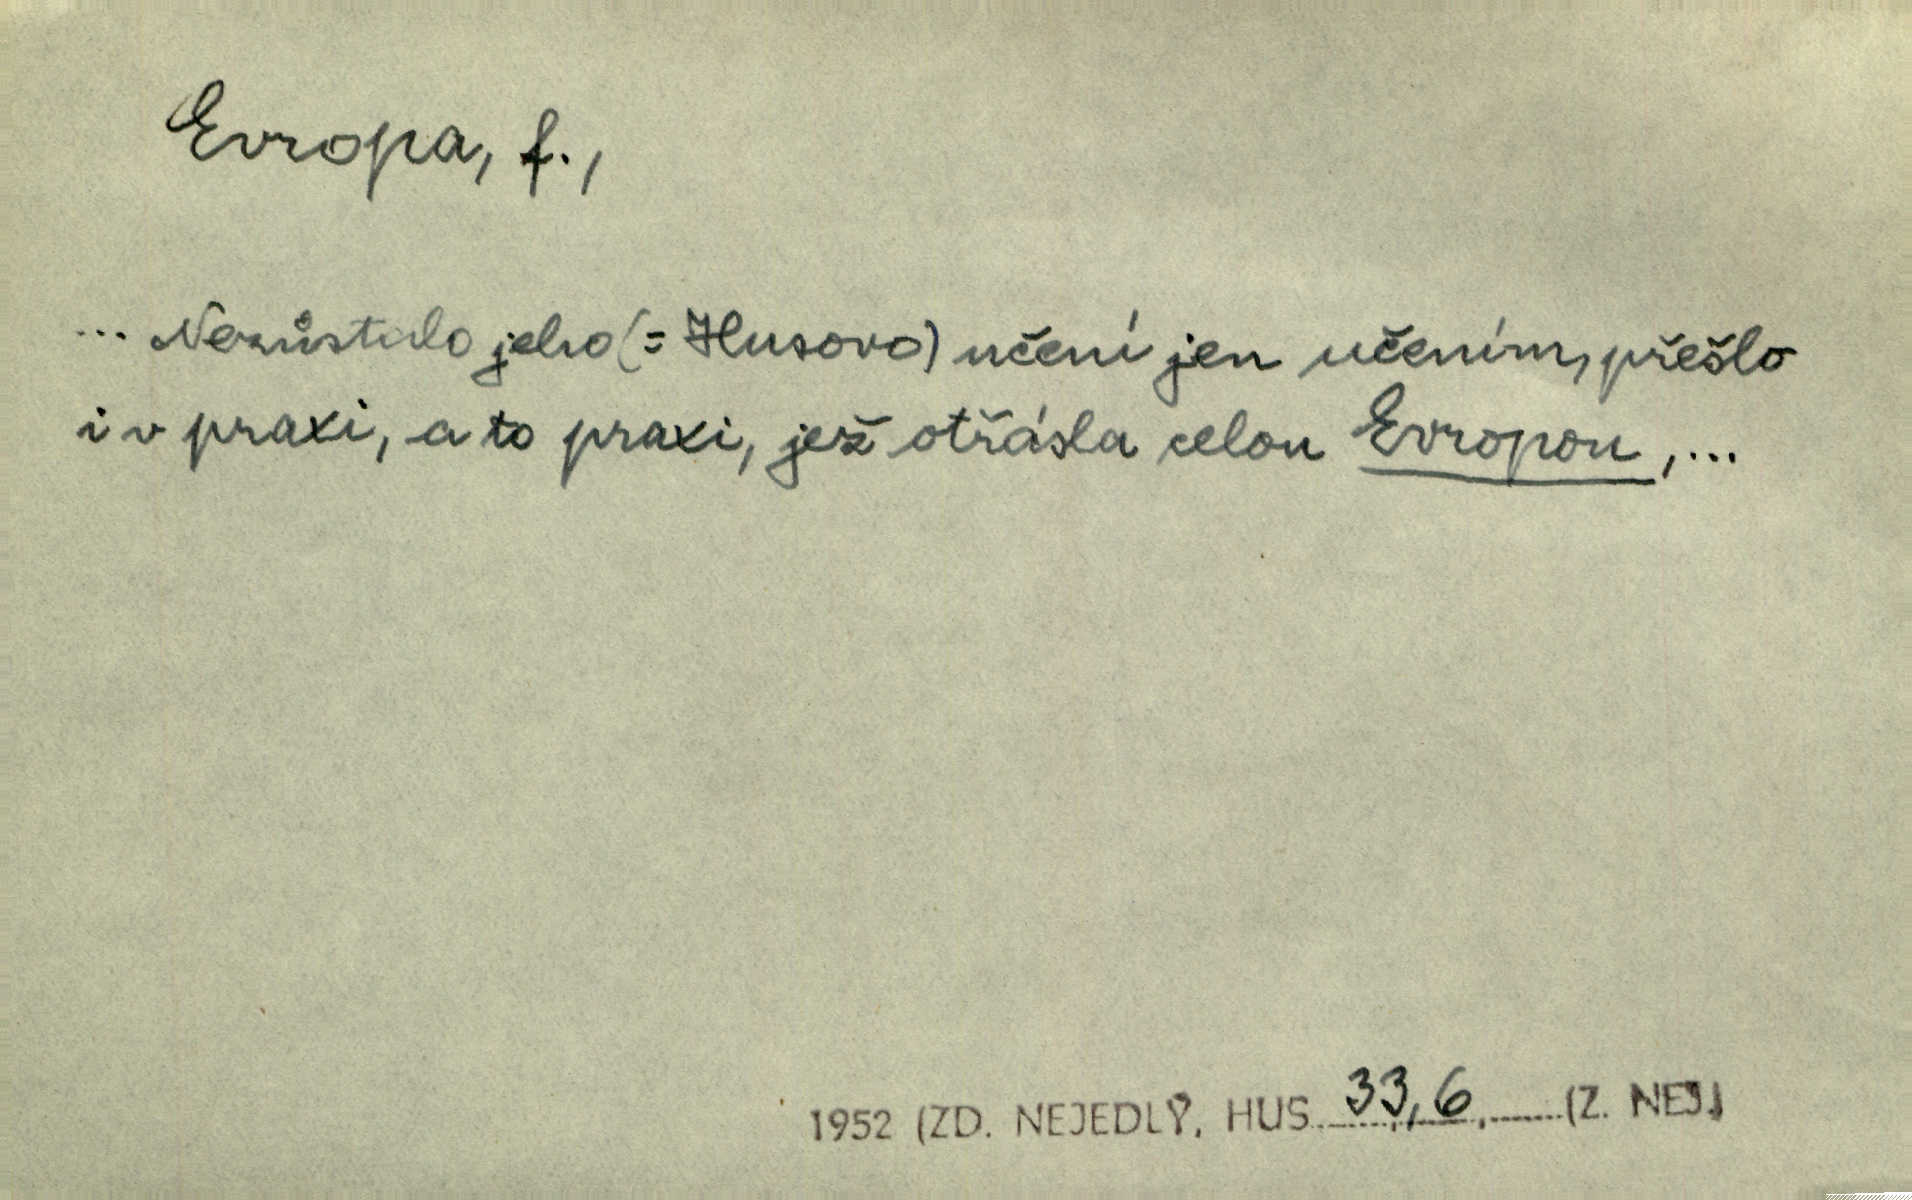 Evropa, f.,
... Nezůstalo jeho (= Husovo) učení jen učením, přešlo
i v praxi, a to praxi, jež otřásla celou Evropou, ...
1952 (ZD. NEJEDLÝ, HUS 33,6, (Z. NEJ.)